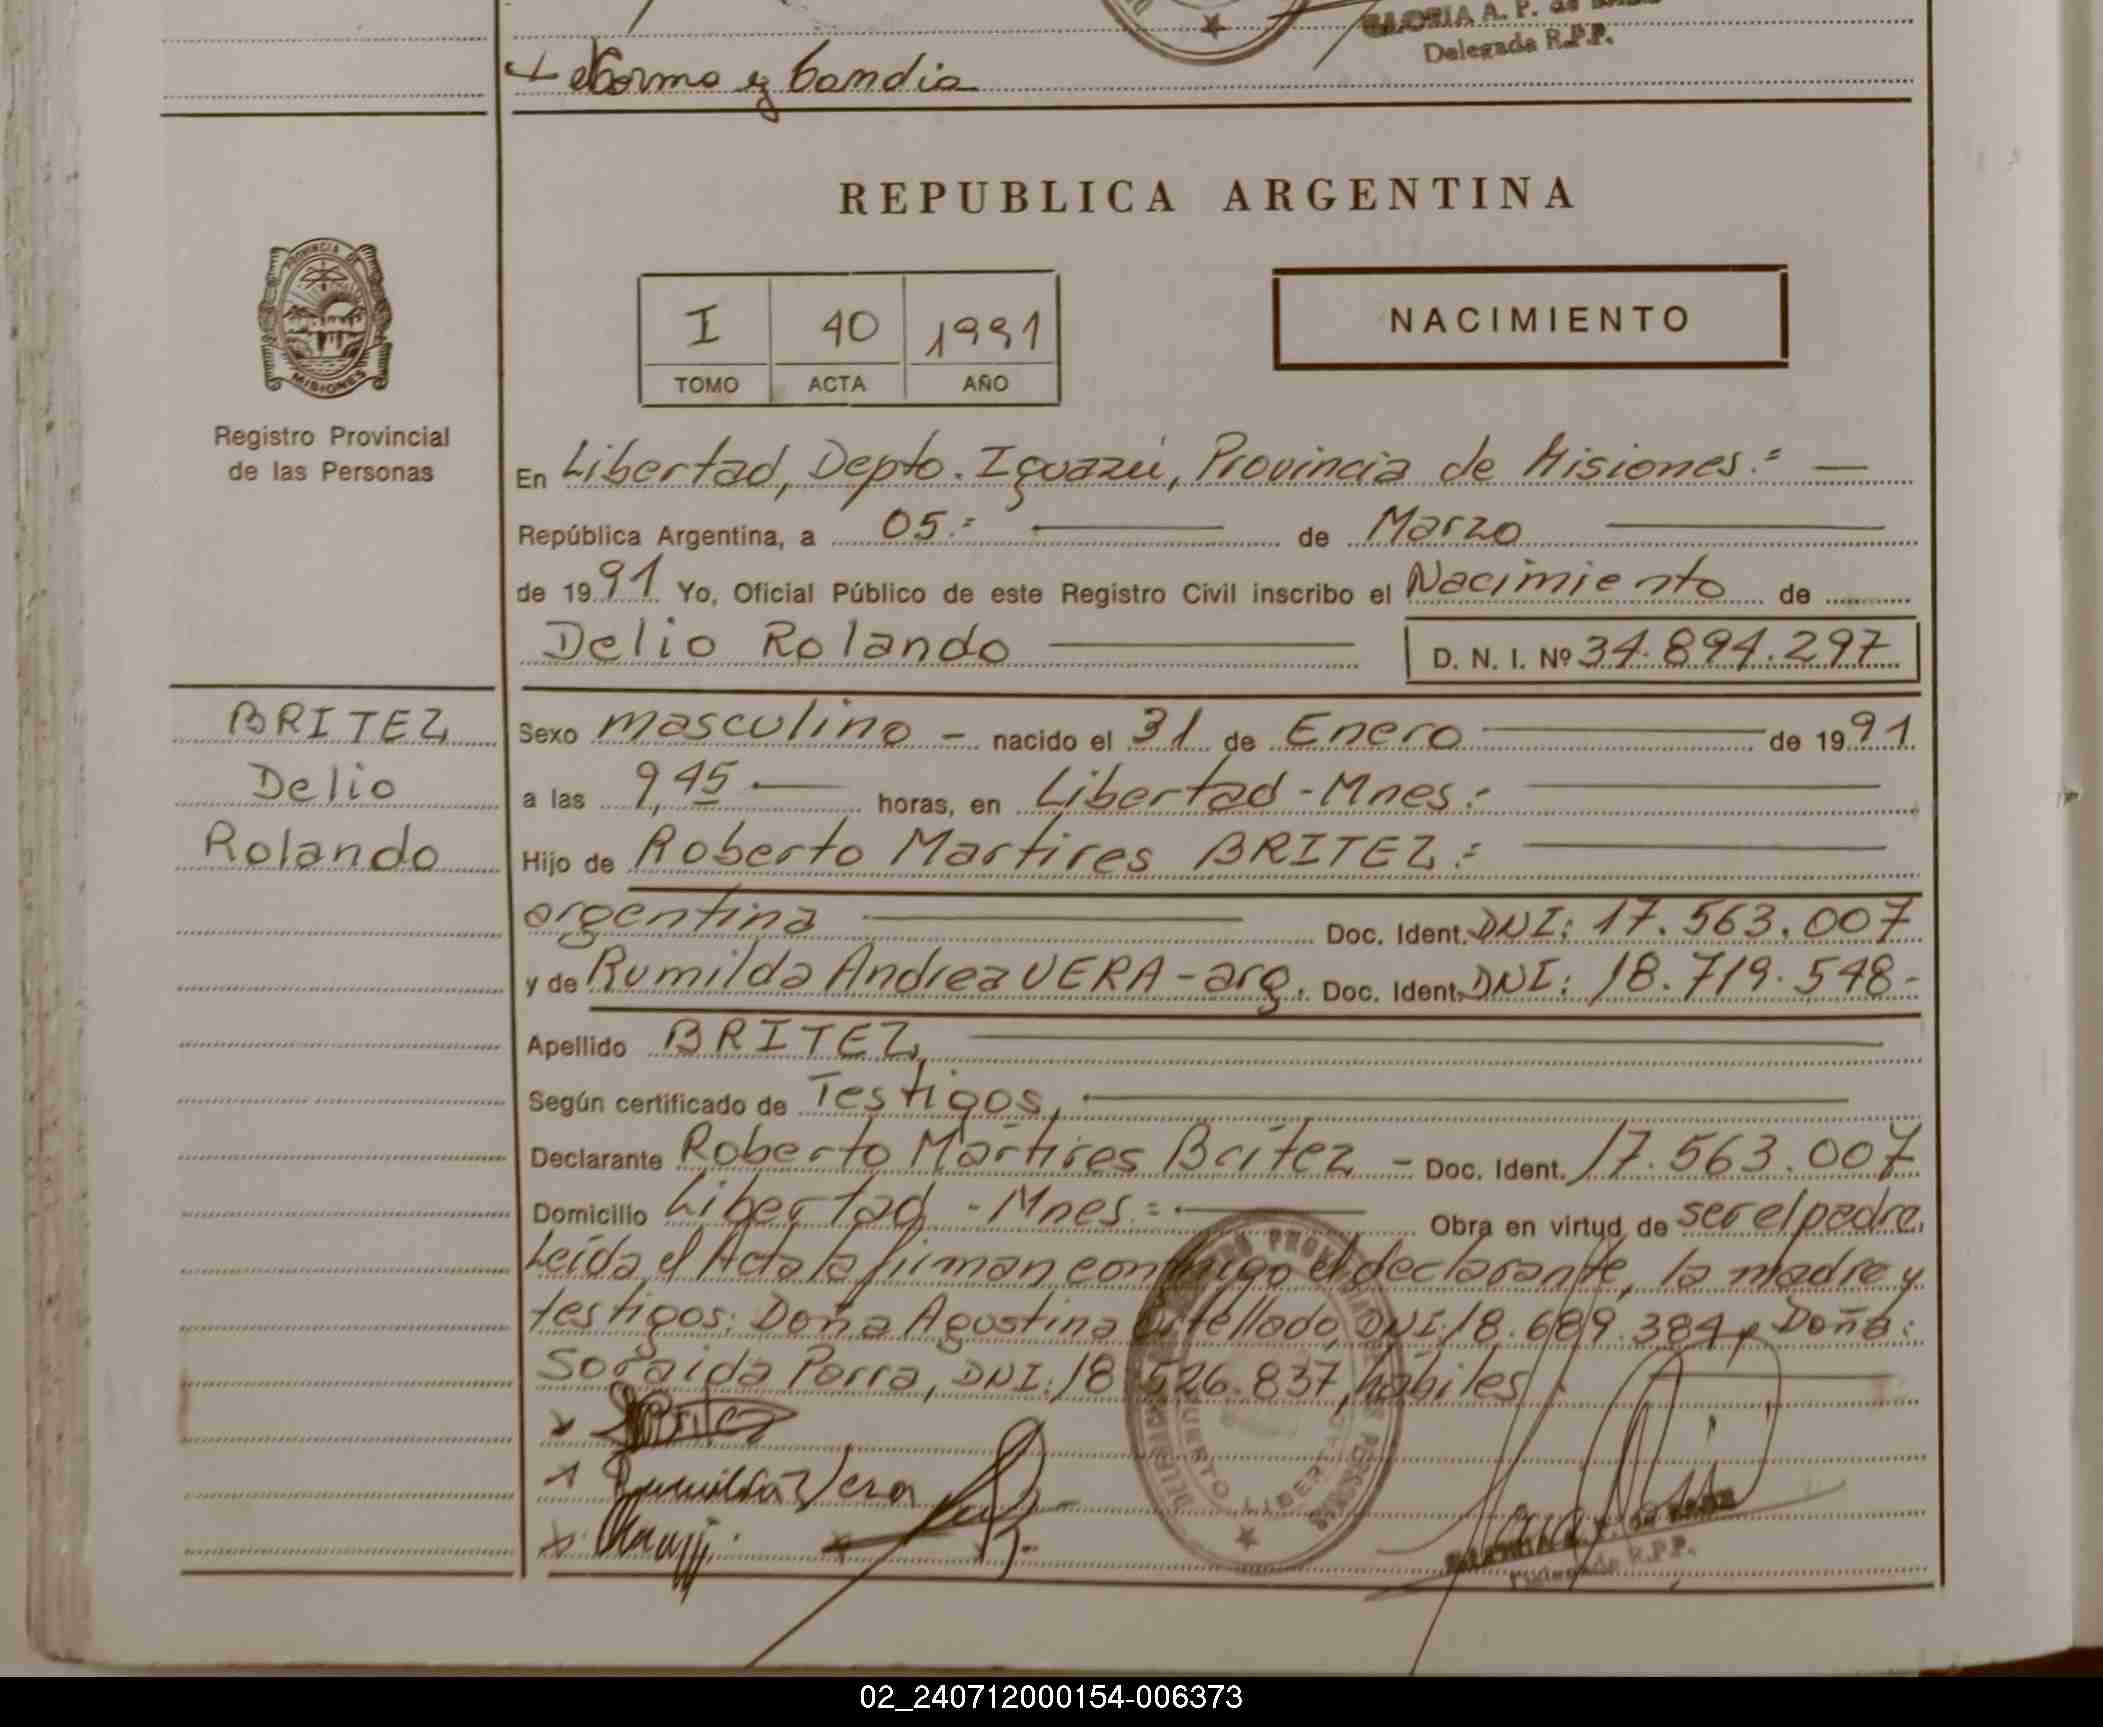 GLORIA A. P. de
Delegada R.P.P.
REPUBLICA ARGENTINA
PROVINCIA DE
MISIONES
Registro Provincial
de las Personas
I 40 1991
TOMO ACTA AÑO
NACIMIENTO
En Libertad, Depto. Iguazú, Provincia de Misiones.=
República Argentina, a 05.= de Marzo
de 1991 Yo, Oficial Público de este Registro Civil inscribo el Nacimiento de
Delio Rolando D. N. I. Nº 34.894.297
BRITEZ
Delio
Rolando
Sexo masculino - nacido el 31 de Enero de 1991.
a las 9,45 horas, en Libertad - Mnes.-
Hijo de Roberto Martires BRITEZ.=
argentina Doc. Ident. DNI: 17.563.007
y de Rumilda Andrea VERA - arg. Doc. Ident. DNI: 18.719.548-
Apellido BRITEZ,
Según certificado de Testigos,
Declarante Roberto Martires Britez - Doc. Ident. 17.563.007
Domicilio Libertad - Mnes.= Obra en virtud de ser el padre.
Leída el Acta la firman conmigo el declarante, la madre y
testigos: Doña Agostina DNI: 18.689.384 y Doña:
Soraida Parra, DNI: 18.526.837, hábiles
Britez
Rumilda Vera
PUERTO LIBERTAD
R.P.P.
02_240712000154-006373